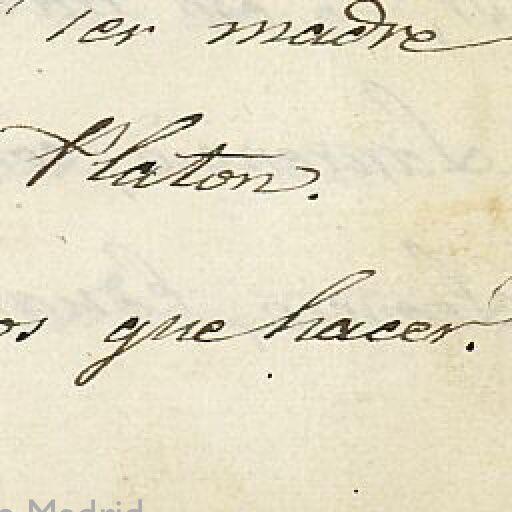 ser madre
Platon.
os que hacer.
Madrid